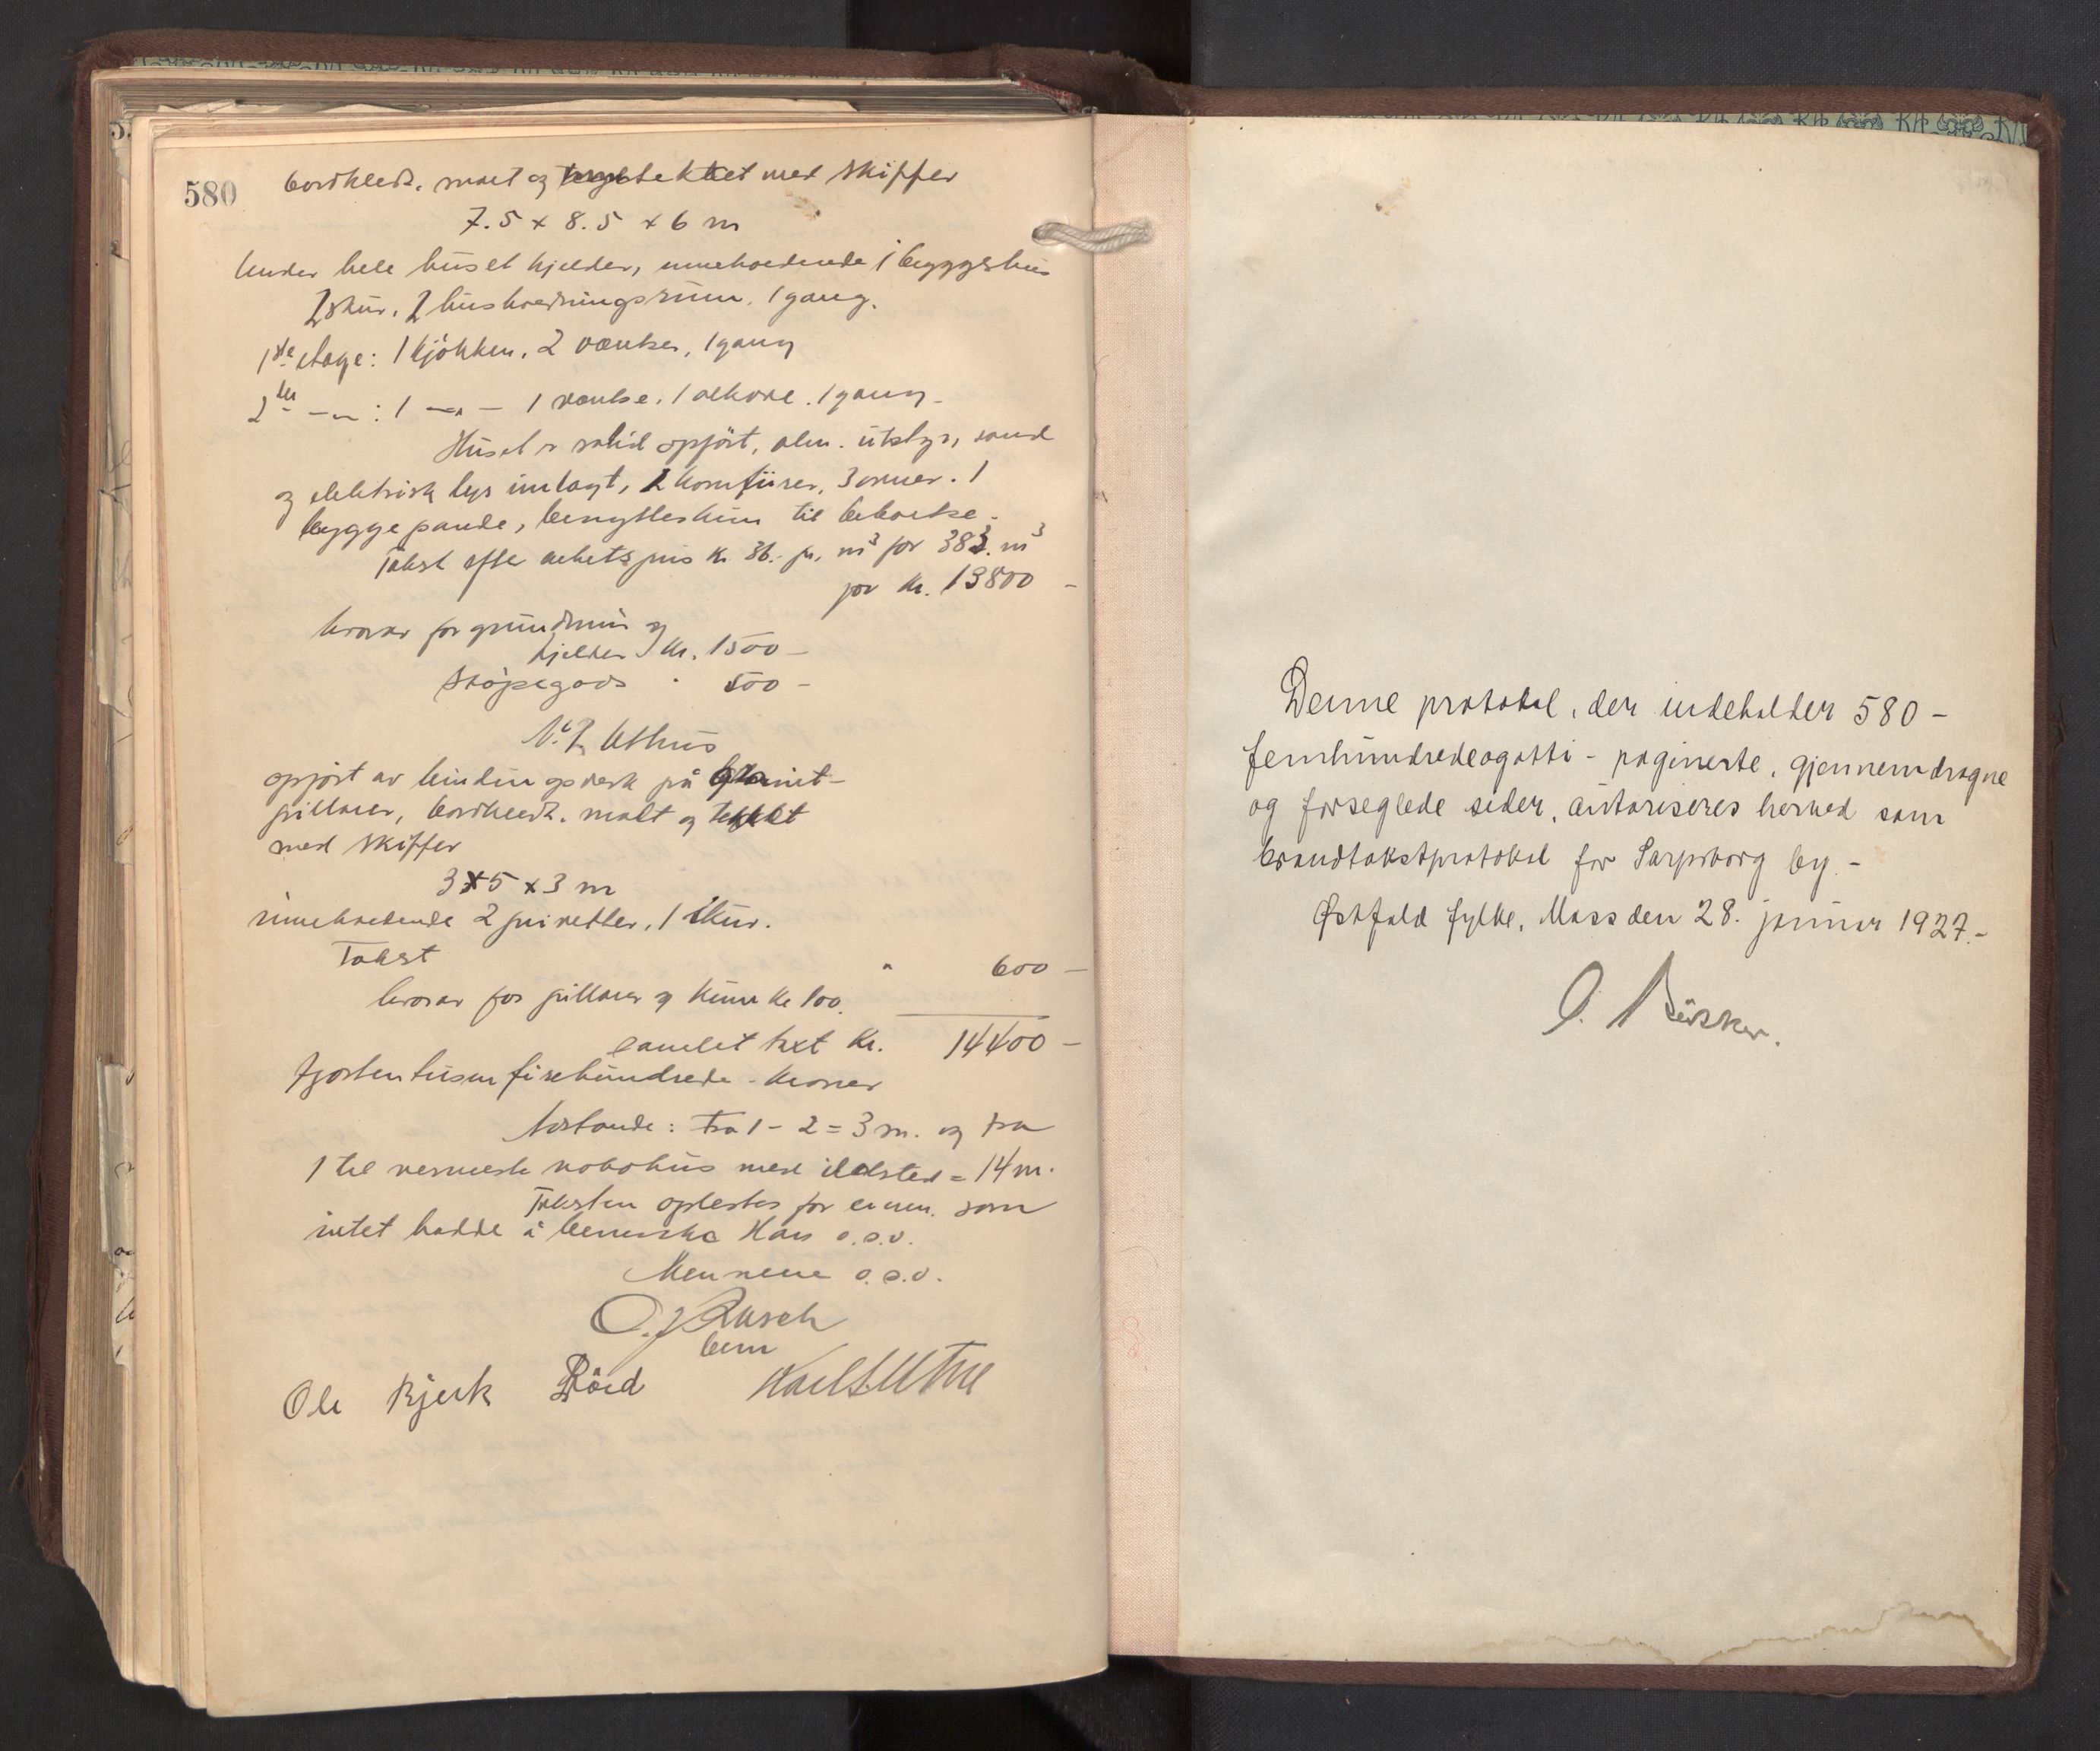 580
bordklædt, malt og tækket med skiffer
7.5 x 8.5 x 6 m
Under hele huset kjelder, inneholdende 1 bryggehus
2 skur, 2 husholdningsrum, 1 gang.
1ste etage: 1 kjökken, 2 værelser, 1 gang
2den —"— : 1 —"— 1 værelse, 1 alkove. 1 gang –
Huset er solid opfört, alm. utstyr, vand
og elektrisk lys indlagt, 2 komfürer, 3 ovner. 1
bryggepande, benyttes kun til beboelse.
Takst efter enhetspris kr. 36.- pr. m³ for 383. m³
for kr. 13800 –
herav for grundmur og
kjelder kr. 1500 –
Stöpegods " 500 –
No. 2, Uthus
opfört av bindingsverk på granit-
pillarer, bordklædt. malt og tækket
med skiffer
3 x 5 x 3 m
inneholdende 2 priveter, 1 skur.
Takst " 600 –
herav for pillarer og kum kr 100.
samlet takst kr. 14400 –
fjortentusen firehundrede - kroner
Avstande: fra 1 – 2 = 3 m. og fra
1 til nærmeste nabohus med ildsted = 14 m.
Taksten oplestes for eieren. som
intet hadde å bemerke Hans o.s.v.
Mennene o.s.v.
O. J. Rusch
Ole Bjerk Röed Karl S. Utne
Denne protokol, der indeholder 580 –
femhundredeogotti – paginerte, gjennemdragne
og forseglede sider, autoriseres herved som
brandtakstprotokol for Sarpsborg by. –
Østfold fylke, Moss den 28. januar 1927. –
O.